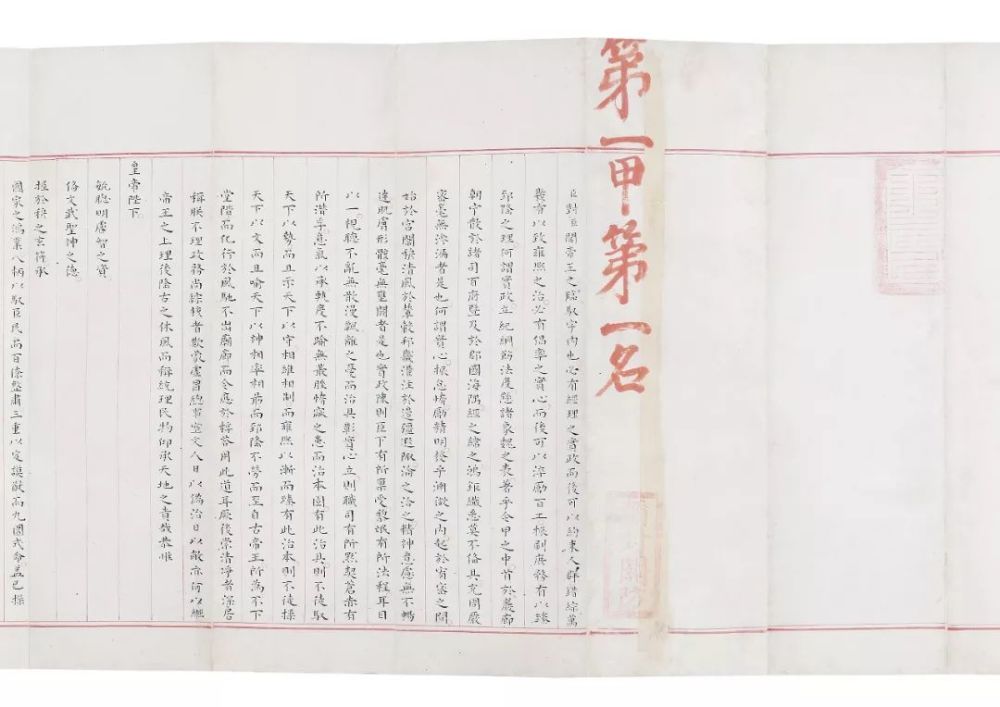 第一甲第一名
臣對臣聞帝王之臨馭宇內也必有經理之實政而後可以約束人群錯綜萬
幾有以致雍熙之治必有倡率之實心而後可以淬勵百工振刷庶務有以臻
郅隆之理何謂實政立紀綱飭法度懸諸象魏之表著乎令甲之中首於巖廊
朝宁散於諸司百府暨及於郡國海隅經之緯之鴻鉅纖悉莫不備具充周嚴
密毫無滲漏者是也何謂實心振怠惰勵精明發乎淵微之內起於宥密之間
始於宮闈穆清風於輦轂邦畿灌注於邊疆遐陬淪之洽之精神意慮無不暢
達肌膚形骸毫無壅閼者是也實政陳則臣下有所稟受黎氓有所法程耳目
以一視聽不亂無散漫飄離之憂而治具彰實心立則職司有所默契蒼赤有
所潛孚意氣以承軌度不踰無叢脞惰窳之患而治本固有此治具則不徒馭
天下以勢而且示天下以守相維相制而雍熙以漸而臻有此治本則不徒操
天下以文而且喻天下以神相率相勗而郅隆不勞而至自古帝王所為不下
堂階而化行於風馳不出廟廊而令應於桴答用此道耳厥後崇清淨者深居
稱朕不理政務尚綜核者欺蒙虛冒總事空文人日以偽治日以敝亦何以繼
帝王之上理後隆古之休風而稱統理民物仰承天地之責哉恭惟
皇帝陛下
毓聰明睿智之資
備文武聖神之德
握於穆之玄符承
國家之鴻業八柄以馭臣民而百僚整肅三重以定謨猷而九圍式命蓋已操
關防